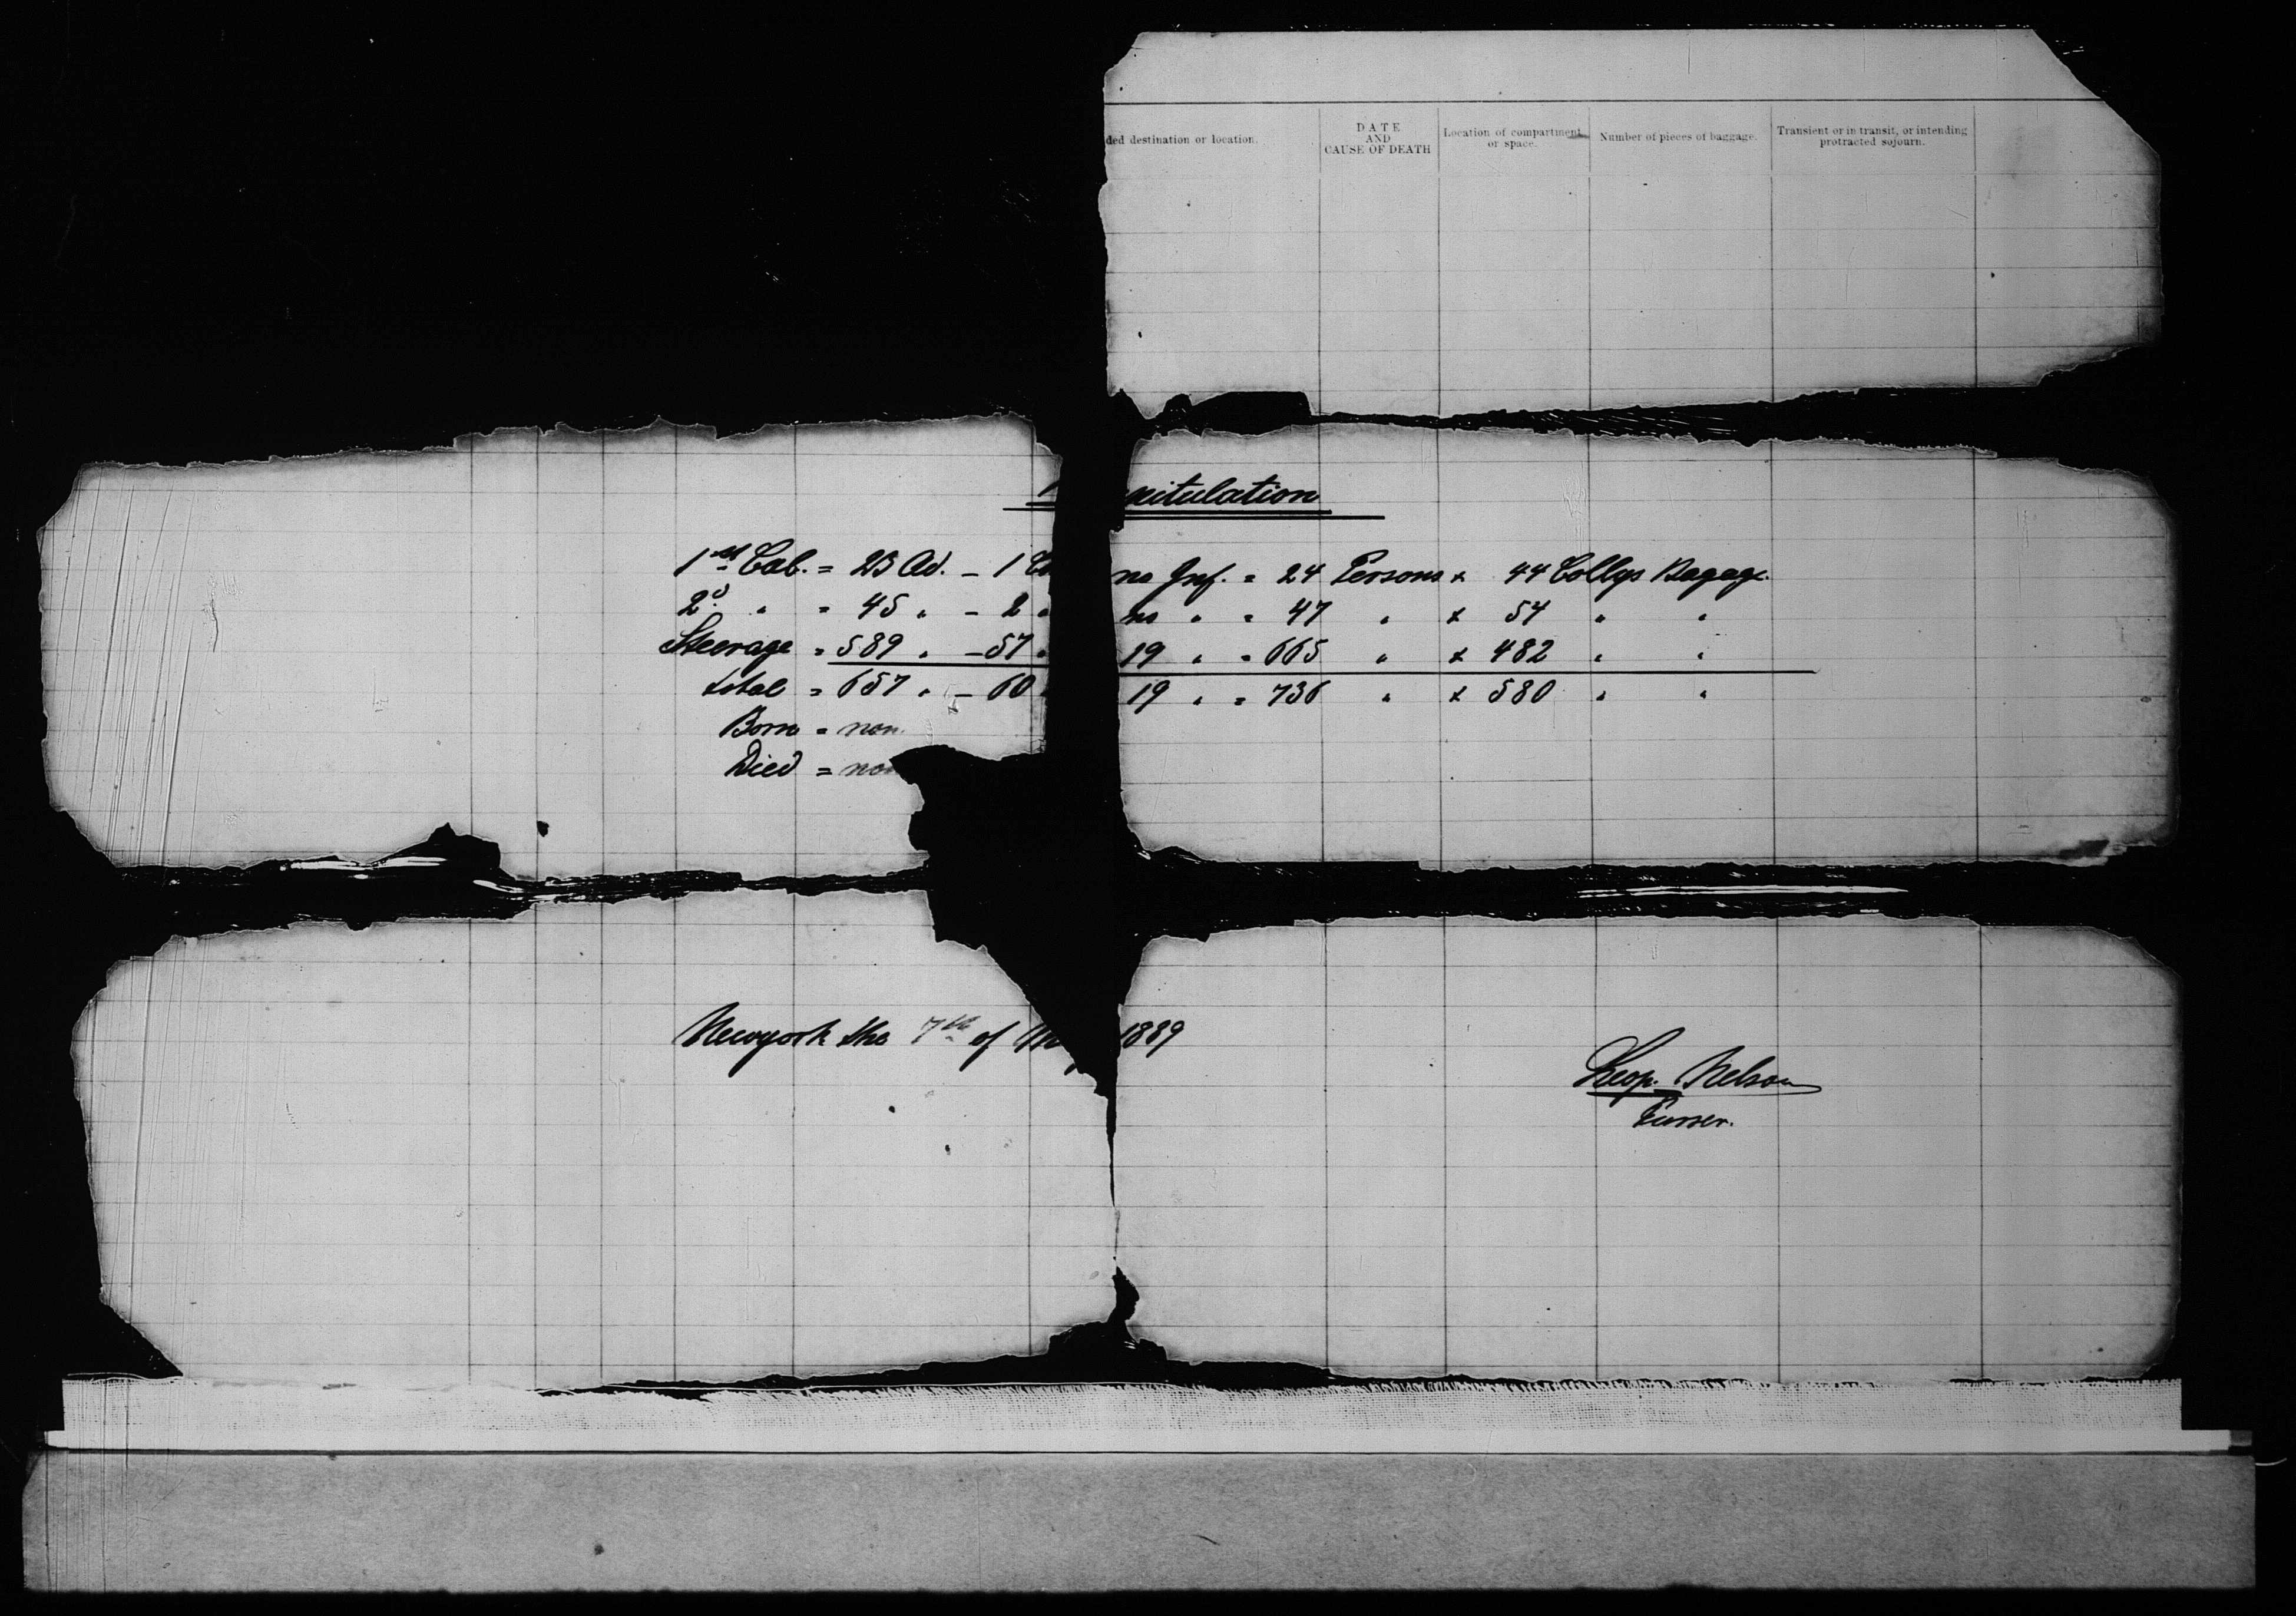 ded destination or location.
DATE
AND
CAUSE OF DEATH
Location of compartment
or space.
Number of pieces of baggage.
Transient or in transit, or intending
protracted sojourn.
pitulation
1st Cab. = 23 Ad. - 1 no Inf. = 24 Persons x 44 Collys Bagage.
2d " = 45 " - 2 " no " = 47 " x 54 " "
Steerage = 589 " - 57 " 19 " = 665 " x 482 " "
total = 657 " - 60 19 " = 736 " x 580 " "
Born = non
Died = non
Newyork the 7th of 1889
Leop. Nelson
Purser.